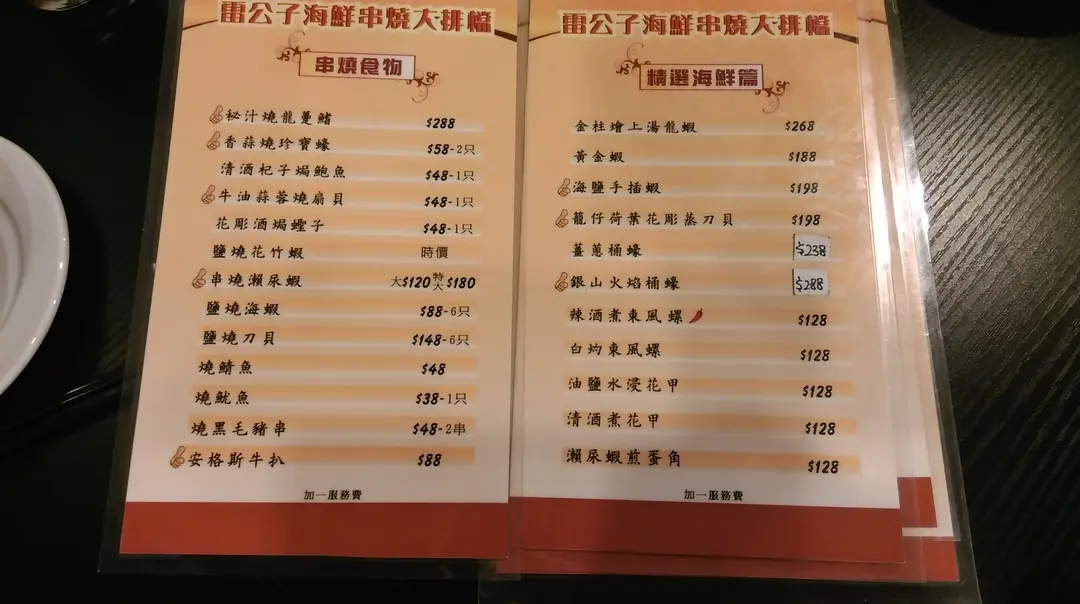 雷公子海鮮串燒大排檔
串燒食物
秘汁燒龍躉鰭 $288
香蒜燒珍寶蠔 $58-2只
清酒杞子焗鮑魚 $48-1只
牛油蒜蓉燒扇貝 $48-1只
花彫酒焗蟶子 $48-1只
鹽燒花竹蝦 時價
串燒瀨尿蝦 大$120 特大$180
鹽燒海蝦 $88-6只
鹽燒刀貝 $148-6只
燒鯖魚 $48
燒魷魚 $38-1只
燒黑毛豬串 $48-2串
安格斯牛扒 $88
加一服務費
雷公子海鮮串燒大排檔
精選海鮮篇
金柱燴上湯龍蝦 $268
黃金蝦 $188
海鹽手插蝦 $198
籠仔荷葉花彫蒸刀貝 $198
薑蔥桶蠔 $238
銀山火焰桶蠔 $288
辣酒煮東風螺 $128
白灼東風螺 $128
油鹽水浸花甲 $128
清酒煮花甲 $128
瀨尿蝦煎蛋角 $128
加一服務費